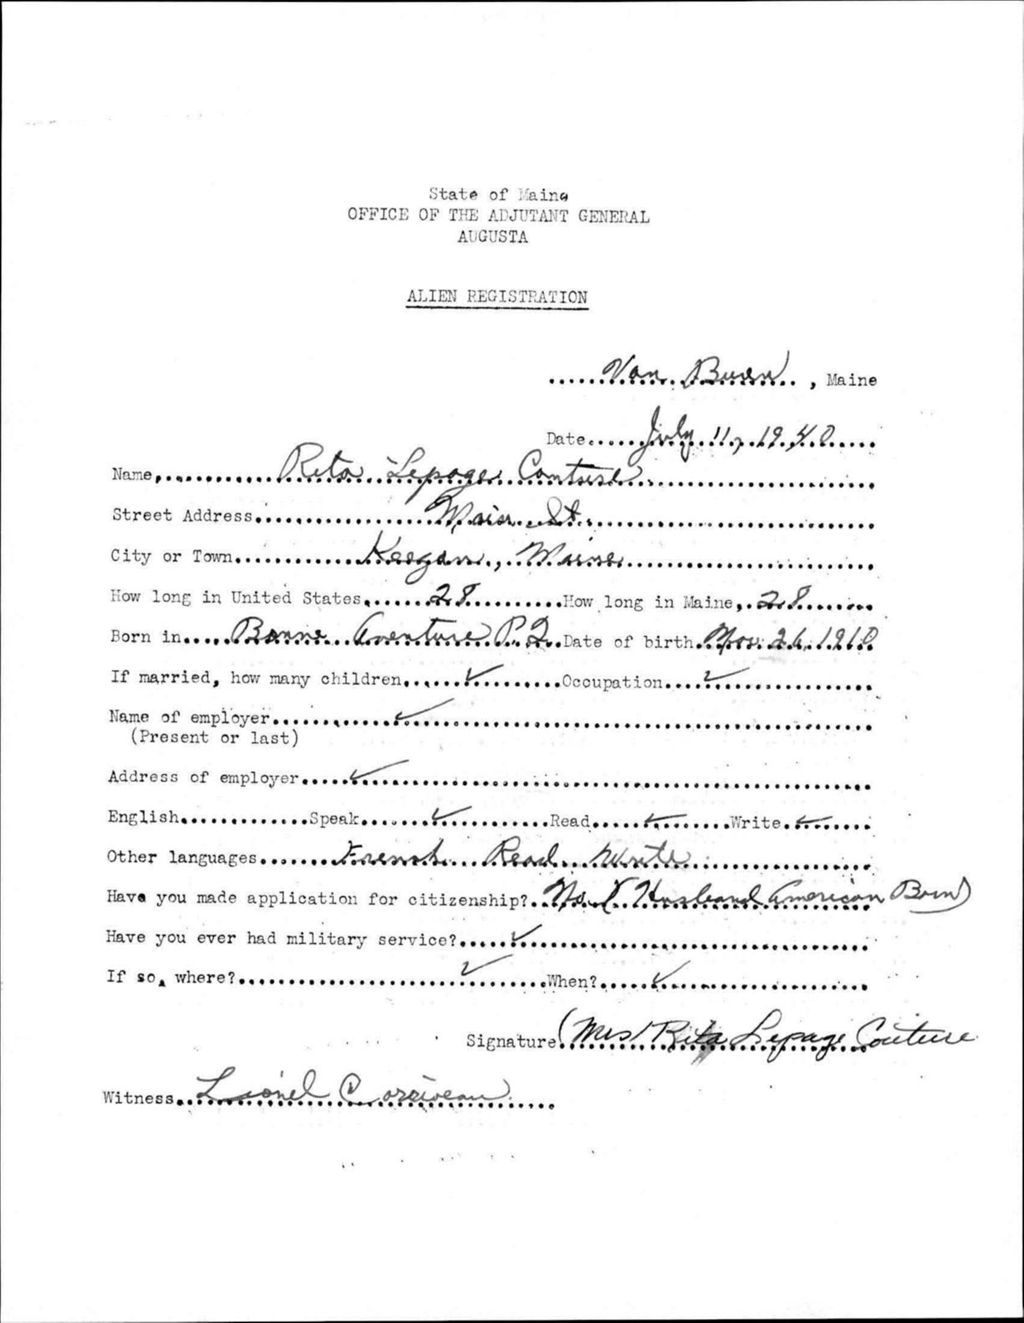 State of Maine
OFFICE OF THE ADJUTANT GENERAL
AUGUSTA
ALIEN REGISTRATION
Van Buren, Maine
Date July 11, 1940
Name Rita Lepage Couture
Street Address Main St.
City or Town Keegan, Maine
How long in United States 28 How long in Maine 28
Born in Bonne Aventure P.Q. Date of birth Nov. 26, 1910
If married, how many children ✓ Occupation ✓
Name of employer ✓
(Present or last)
Address of employer ✓
English Speak ✓ Read ✓ Write ✓
Other languages French Read Write
Have you made application for citizenship? No ( Husband American Born)
Have you ever had military service? ✓
If so, where? ✓ When? ✓
Signature (Mrs) Rita Lepage Couture
Witness Lionel Corriveau